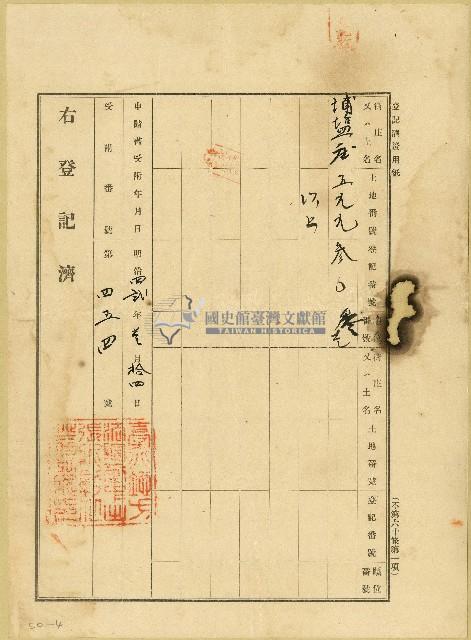 登記濟證用紙
街庄名又ハ土名 土地番號 登記番號 順位番號 街庄名又ハ土名 土地番號 登記番號 順位番號
埔塩庄 五九九
以上
申請書受附年月日 明治四貳年 月拾四日
受附番號第 四五四 號
右登記濟
國史館臺灣文獻館
TAIWAN HISTORICA
(不第六十條第一項)
50-4